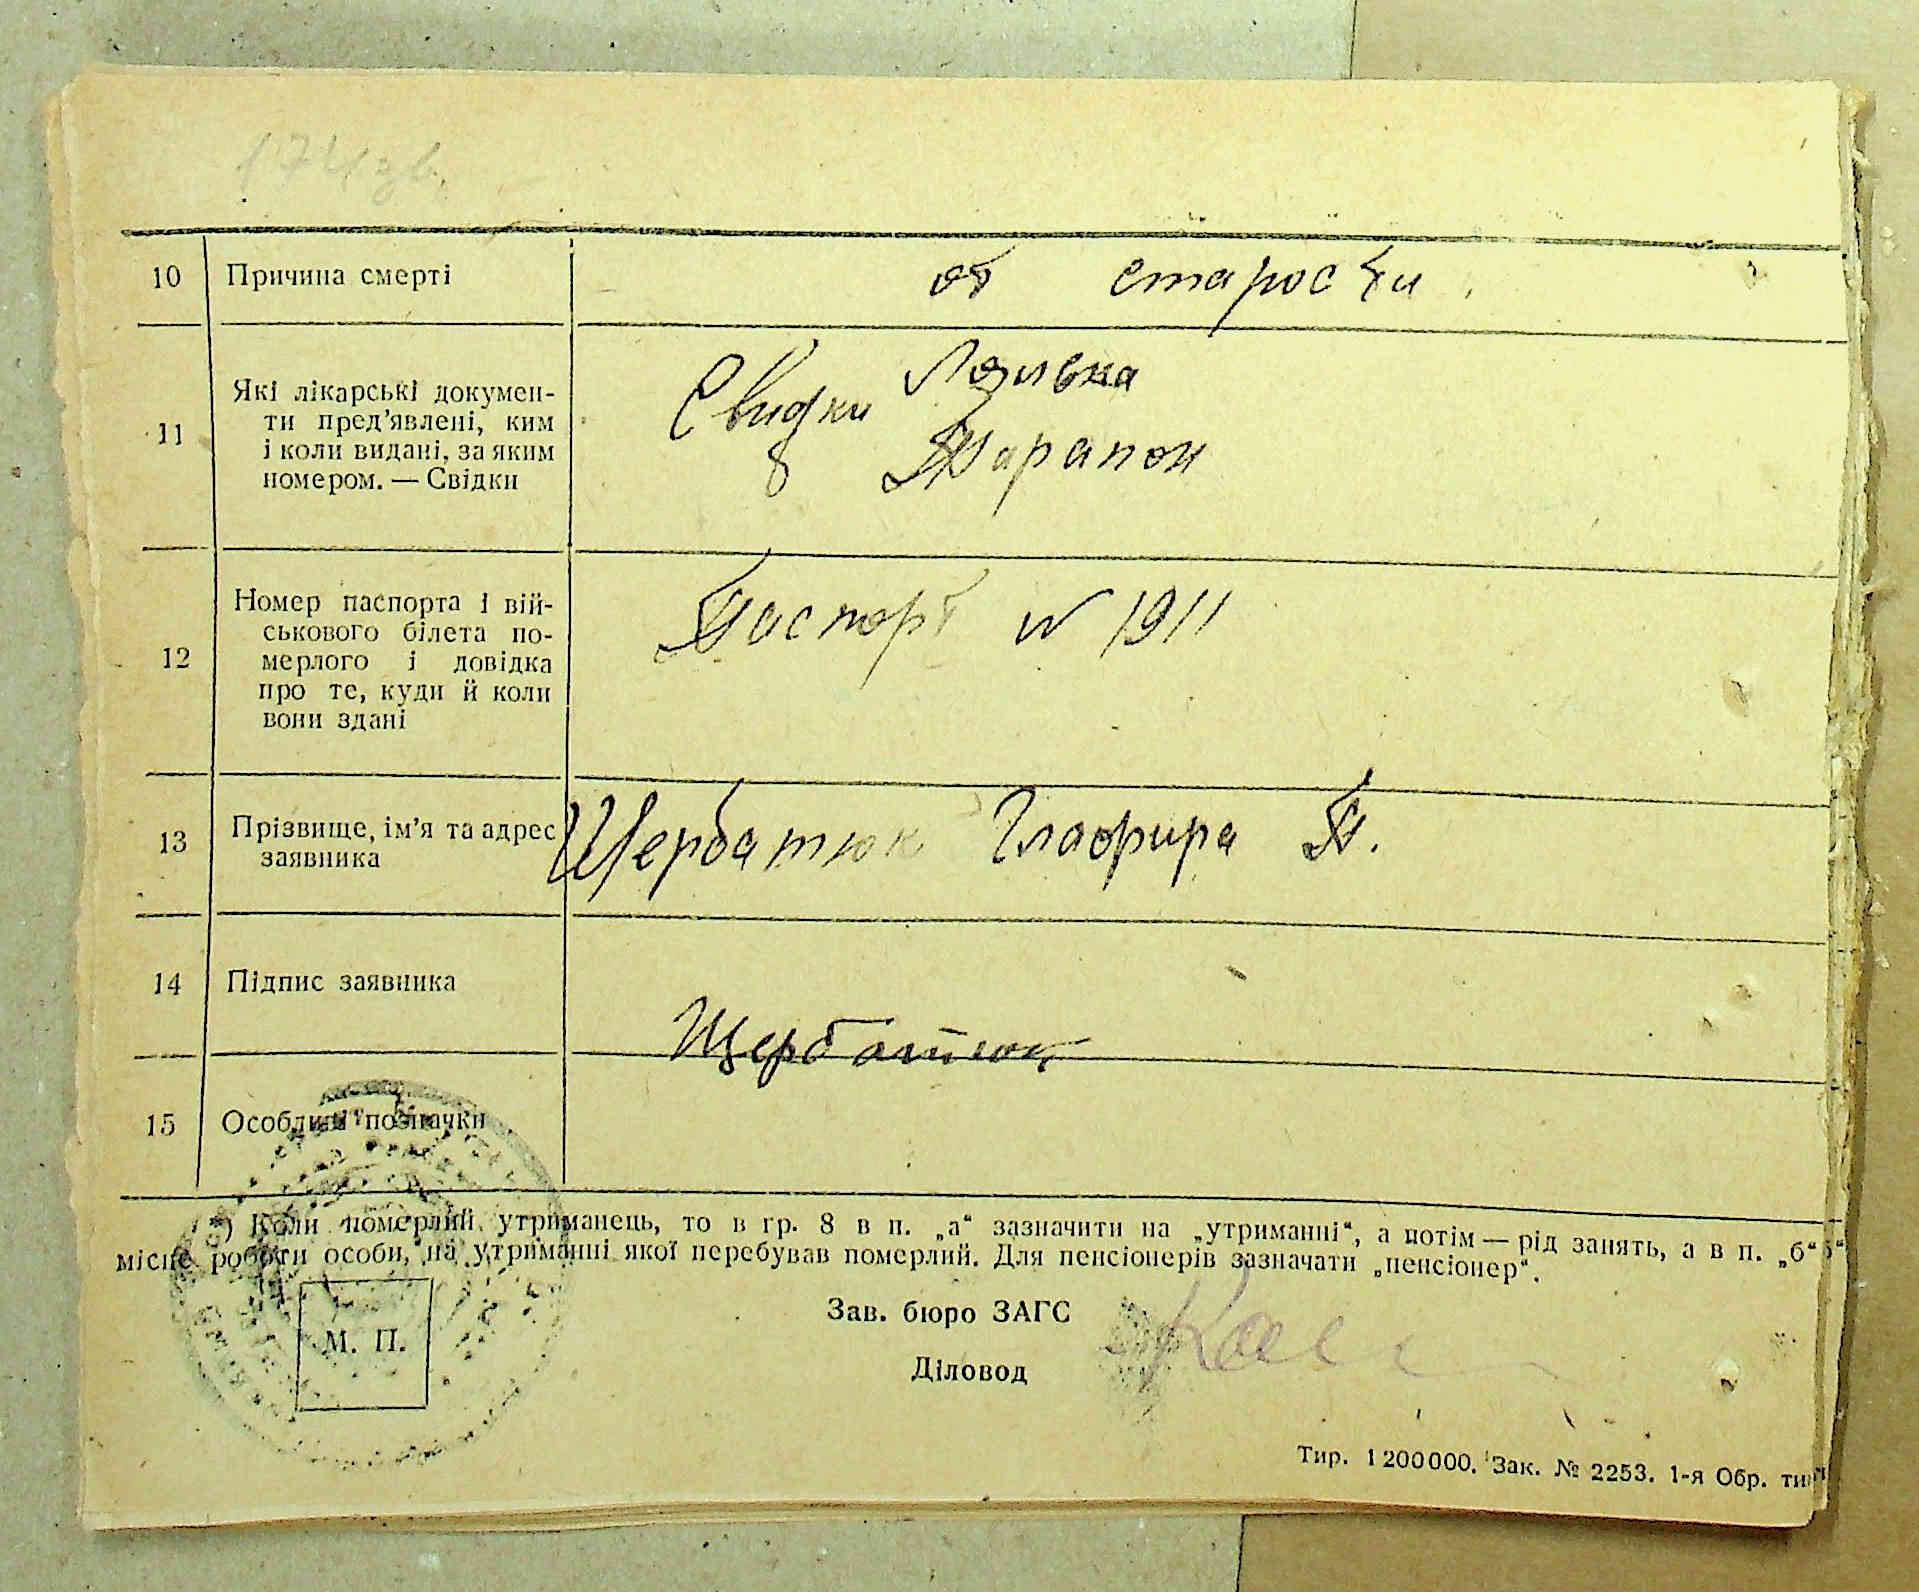 174зв.
10 Причина смерті от старости
11 Які лікарські докумен-
ти пред'явлені, ким
і коли видані, за яким
номером. — Свідки
Свидки
Парапон
12 Номер паспорта і вій-
ськового білета по-
мерлого і довідка
про те, куди й коли
вони здані
Паспорт № 1911
13 Прізвище, ім'я та адрес
заявника
Щербатюк Глафира П.
14 Підпис заявника
Щербатюк
15 Особливі позначки
*) Коли померлий утриманець, то в гр. 8 в п. „а“ зазначити на „утриманні“, а потім — рід занять, а в п. „б“
місце роботи особи, на утриманні якої перебував померлий. Для пенсіонерів зазначати „пенсіонер“.
Зав. бюро ЗАГС
М. П.
Діловод
Тир. 1 200 000. Зак. № 2253. 1-я Обр. тип